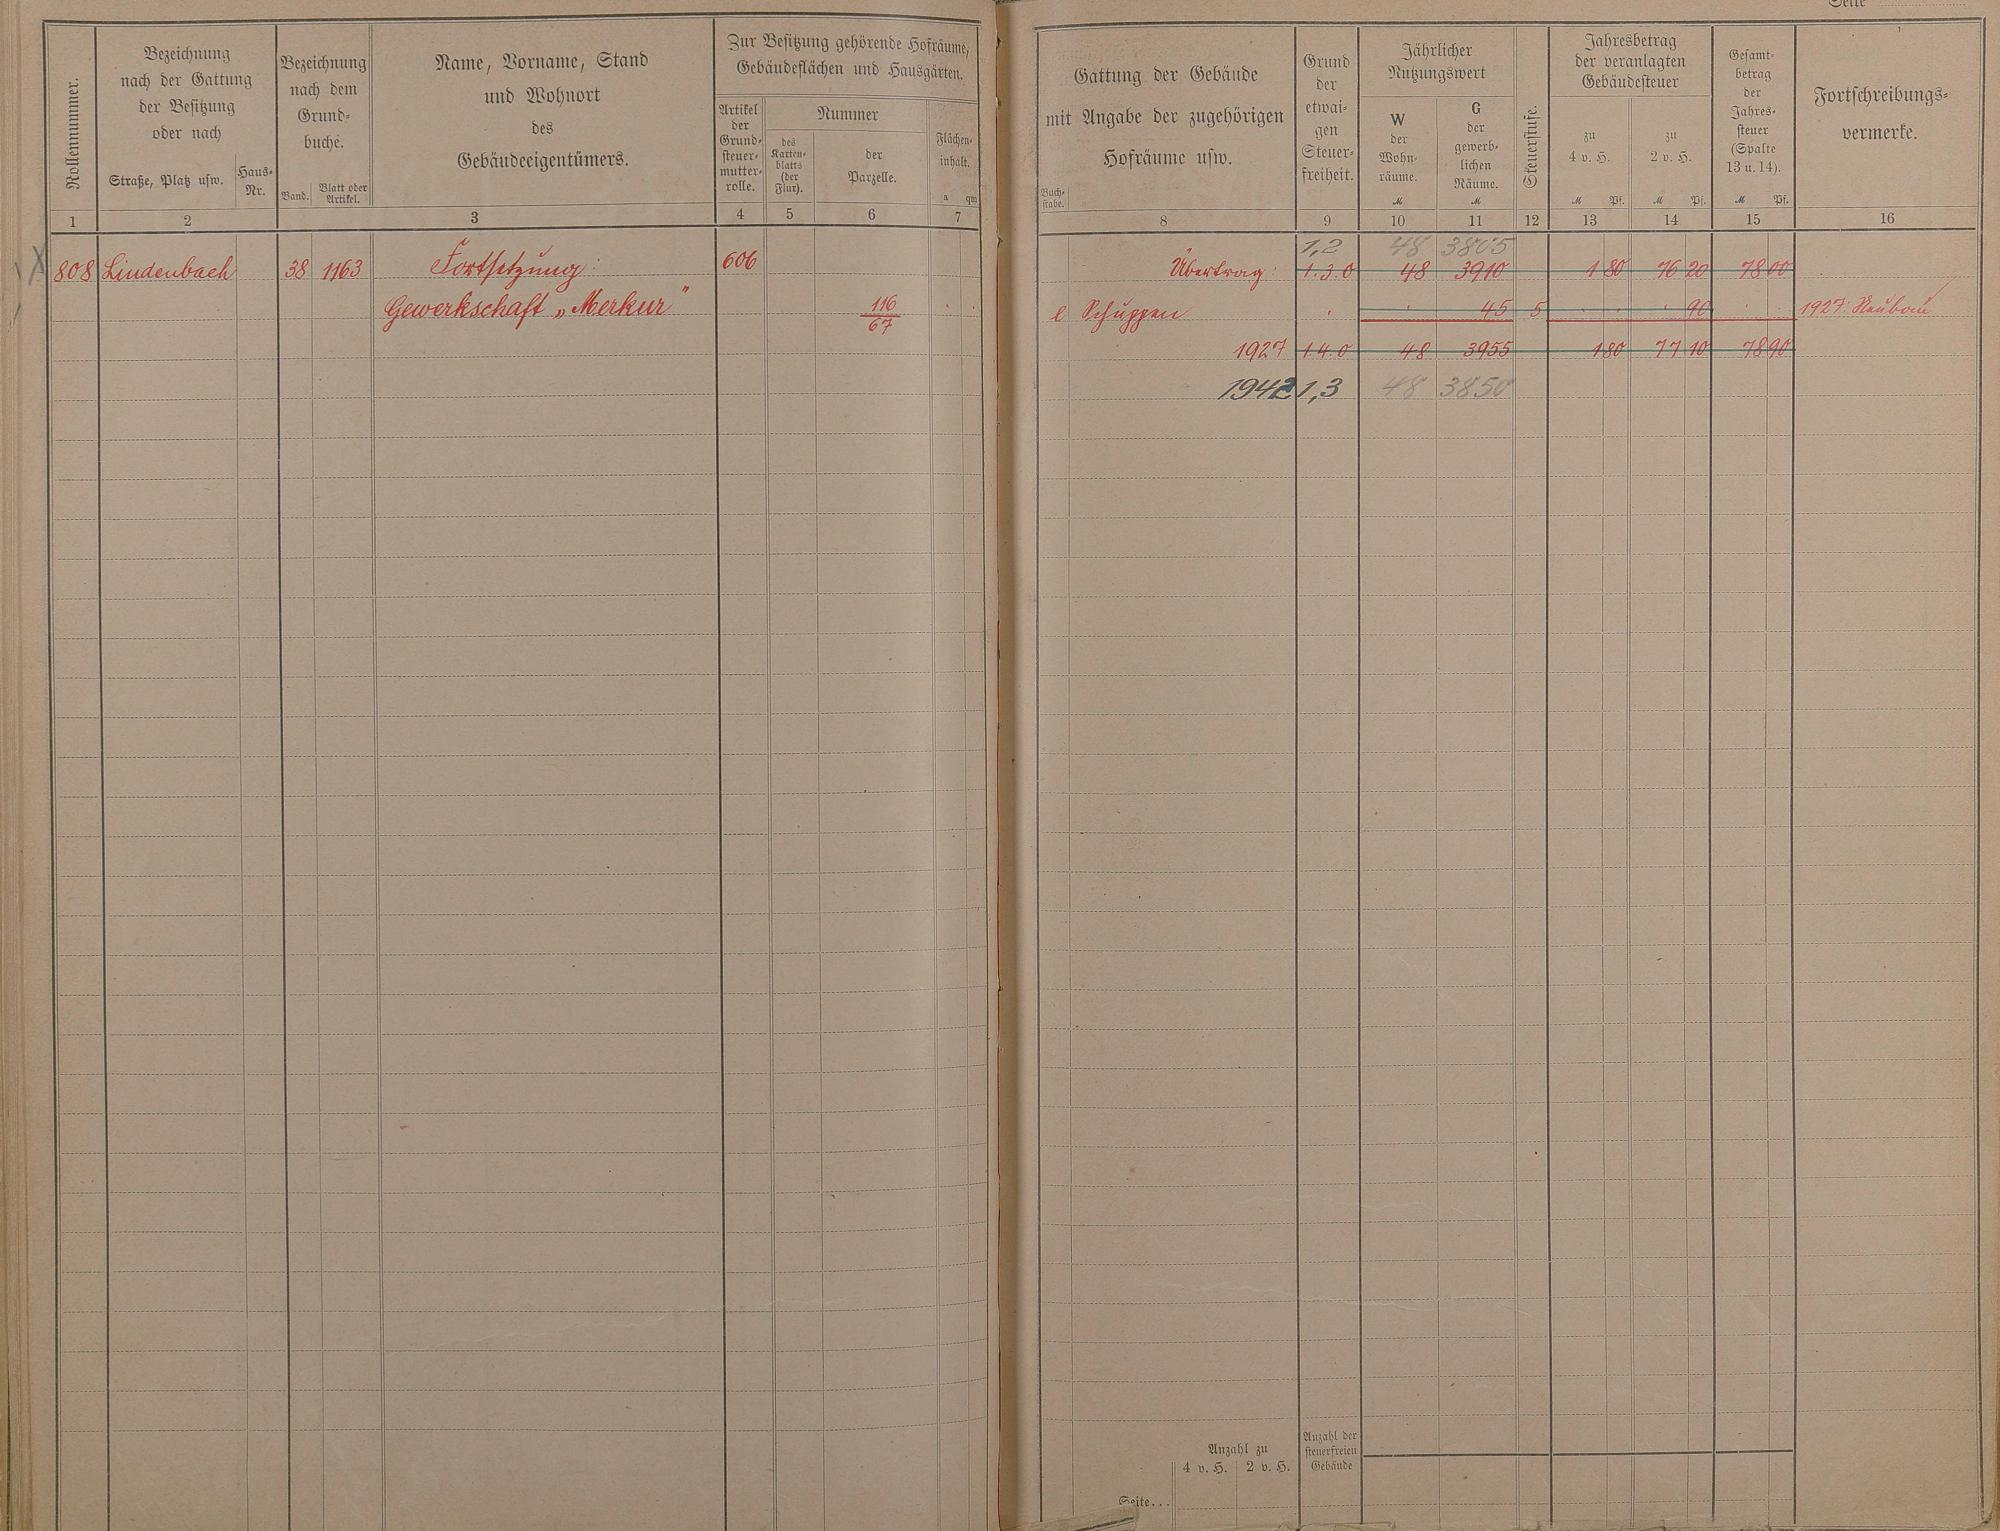 Seite
Rollennummer.
Bezeichnung
nach der Gattung
der Besitzung
oder nach
Straße, Platz usw.
Haus-
Nr.
Bezeichnung
nach dem
Grund-
buche.
Band.
Blatt oder
Artikel.
Name, Vorname, Stand
und Wohnort
des
Gebäudeeigentümers.
Zur Besitzung gehörende Hofräume,
Gebäudeflächen und Hausgärten.
Artikel
der
Grund-
steuer-
mutter-
rolle.
Nummer
des
Karten-
blatts
(der
Flur).
der
Parzelle.
Flächen-
inhalt.
a qm
1 2 3 4 5 6 7
808 Lindenbach 38 1163 Fortsetzung: 606
Gewerkschaft „Merkur" 116
67
Gattung der Gebäude
mit Angabe der zugehörigen
Hofräume usw.
Buch-
stabe.
Grund
der
etwai-
gen
Steuer-
freiheit.
Jährlicher
Nutzungswert
W
der
Wohn-
räume.
M
G
der
gewerb-
lichen
Räume.
M
Steuerstufe.
Jahresbetrag
der veranlagten
Gebäudesteuer
zu
4 v. H.
M Pf.
zu
2 v. H.
M Pf.
Gesamt-
betrag
der
Jahres-
steuer
(Spalte
13 u. 14).
M Pf.
Fortschreibungs-
vermerke.
8 9 10 11 12 13 14 15 16
1,2 48 3805
Übertrag: 1.3.0 48 3910 1 80 76 20 78 00
e Schuppen 45 5 90 1927: Neubau
1927 1.4.0 48 3955 1 80 77 10 78 90
1942 1,3 48 3850
Anzahl zu
4 v. H. 2 v. H.
Anzahl der
steuerfreien
Gebäude
Seite...